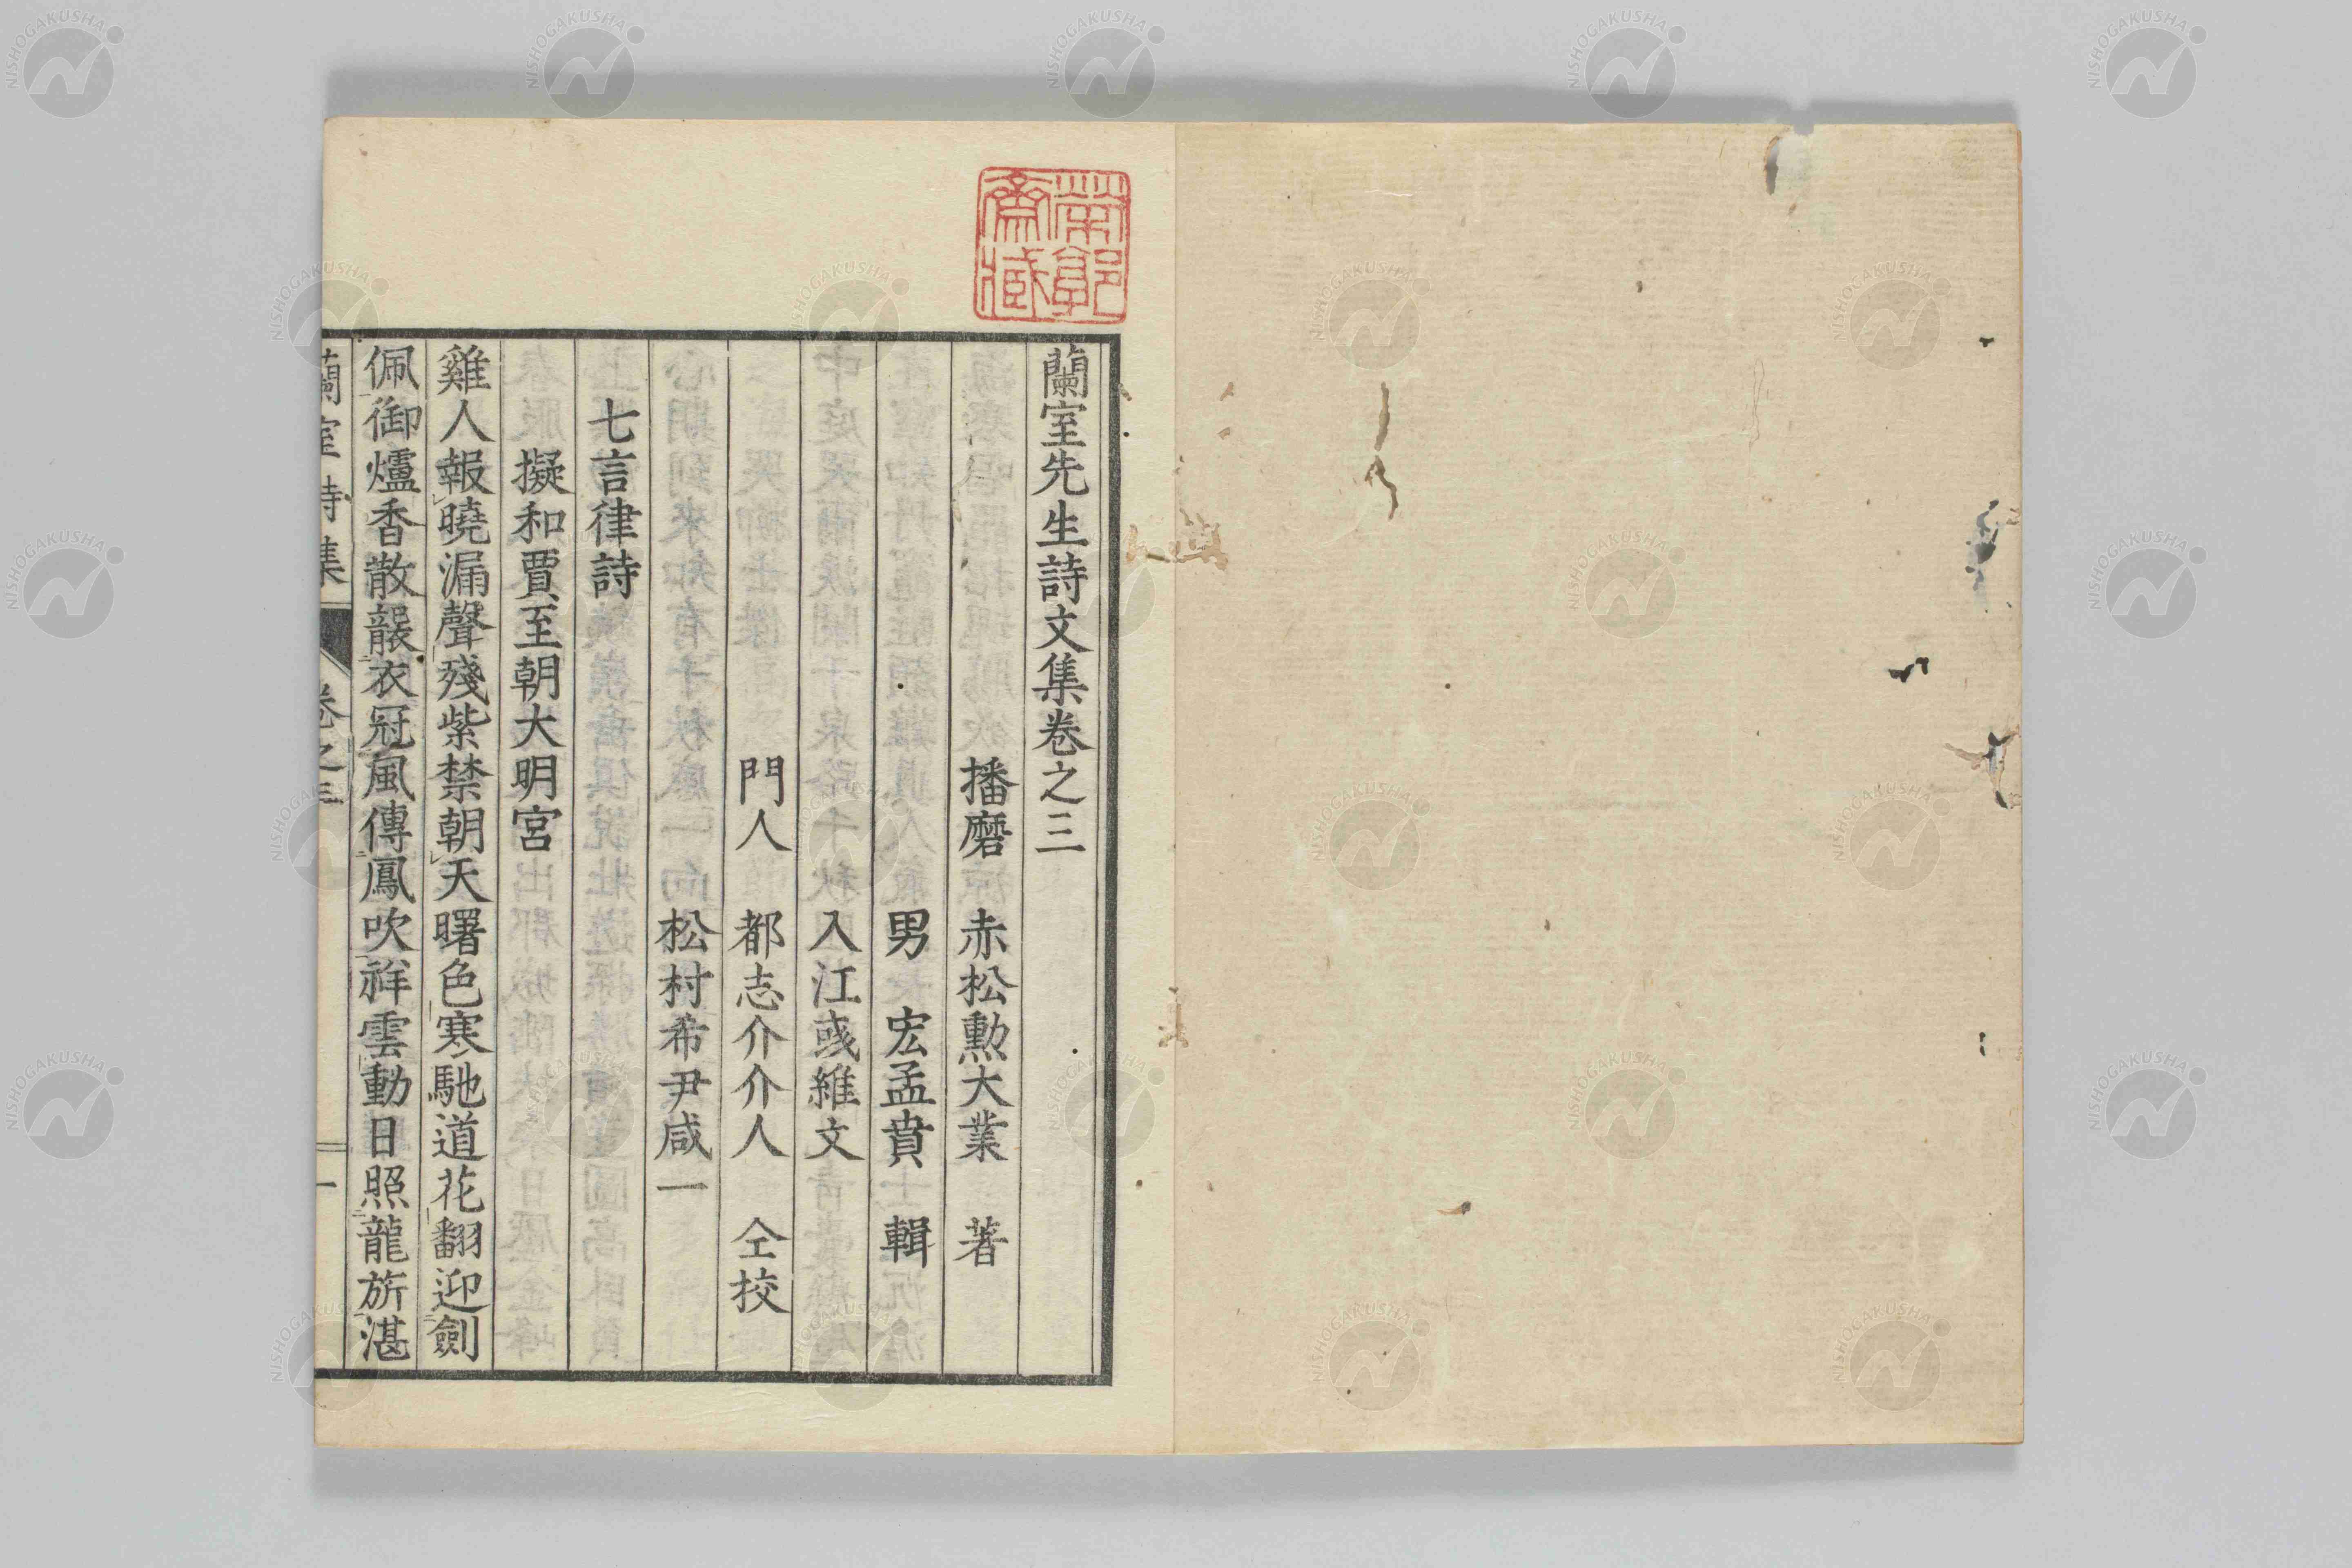 蘭室先生詩文集卷之三
播磨 赤松勲大業 著
男 宏孟賁 輯
入江彧維文
門人 都志介介人 仝挍
松村希尹咸一
七言律詩
擬和賈至朝大明宮
雞人報曉漏聲殘紫禁朝天曙色寒馳道花翻迎劍
佩御爐香散襲衣冠風傳鳳吹祥雲動日照龍旂湛
蘭室詩集 卷之三 一
NISHOGAKUSHA